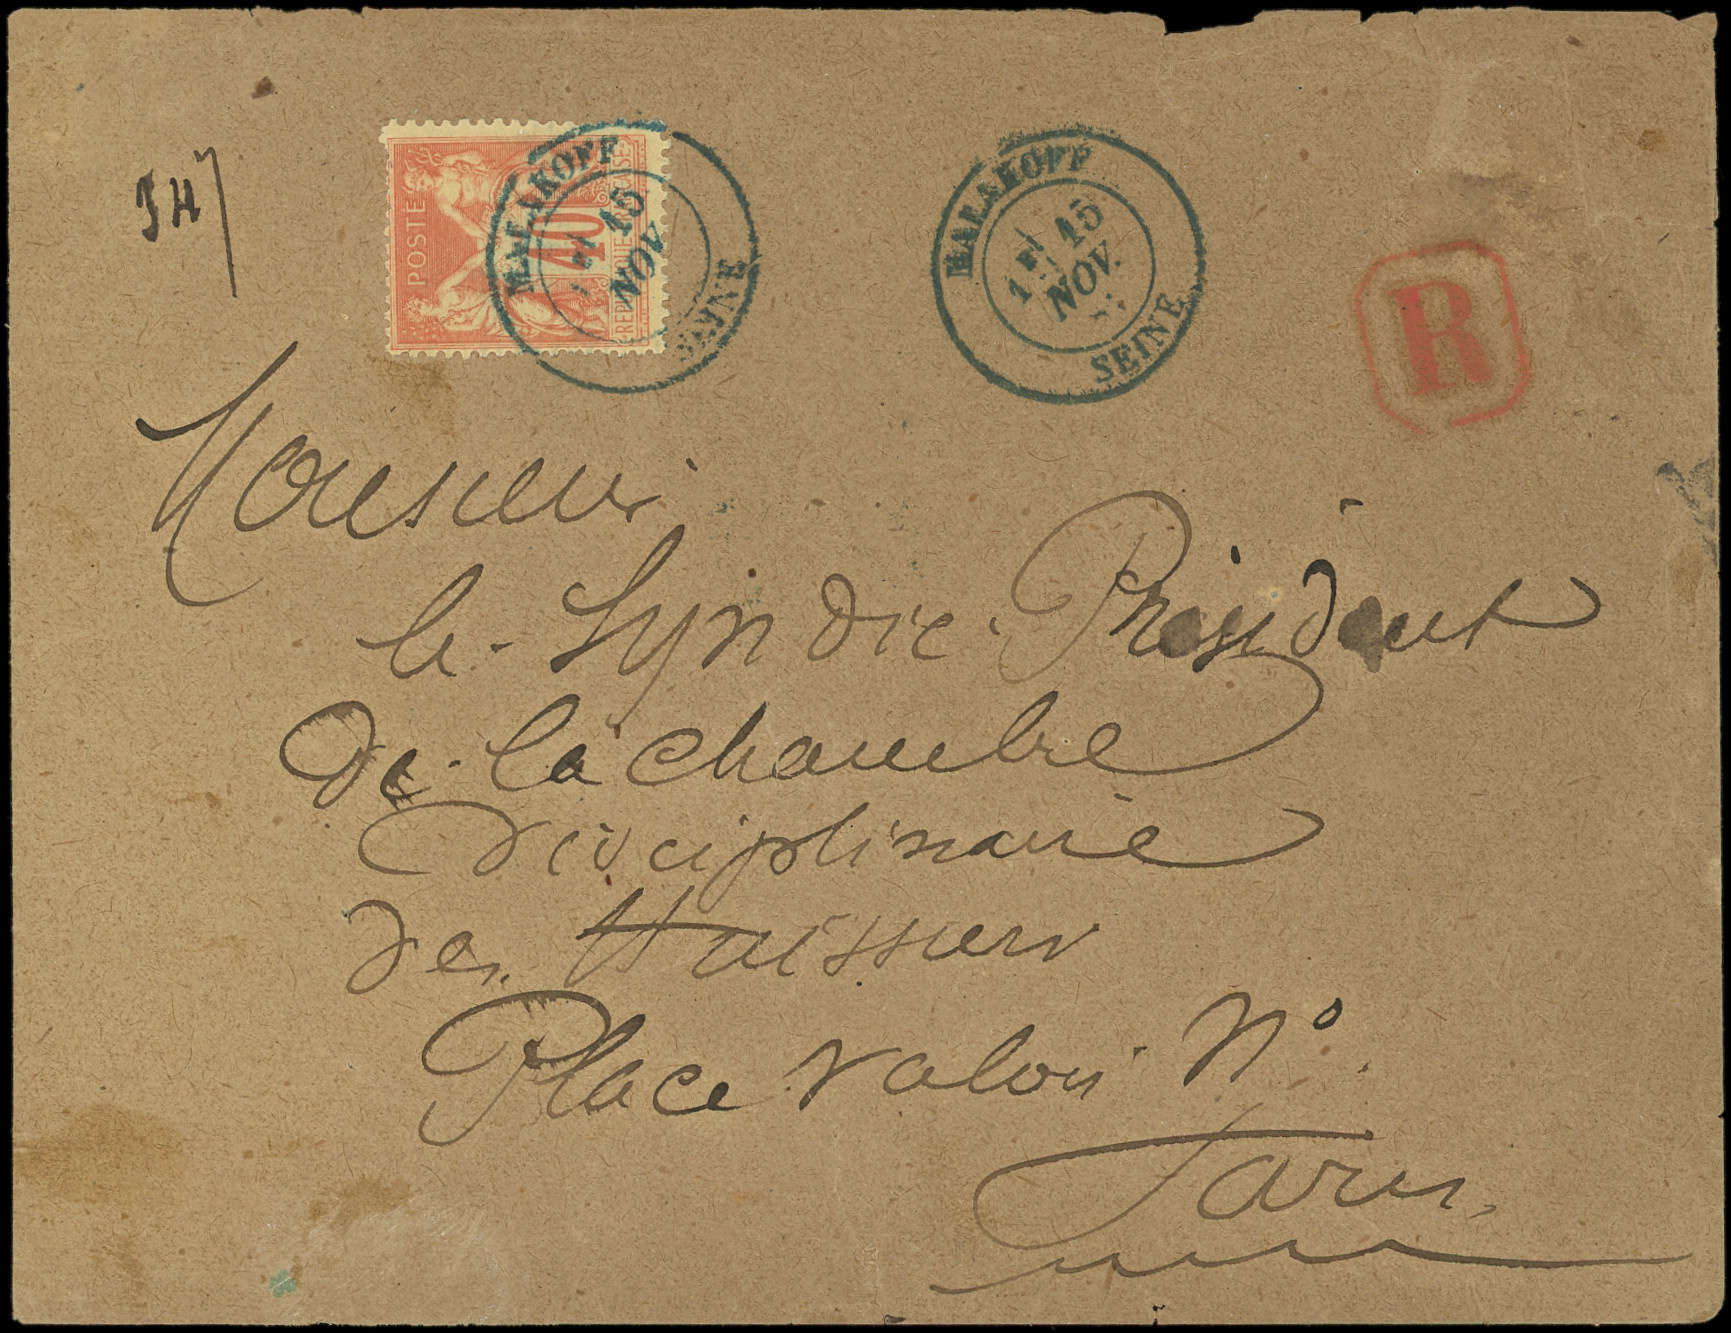 POSTE
40
REPUBLIQUE FRANCAISE
MALAKOFF
15
NOV
SEINE
MALAKOFF
1E 15
NOV.
SEINE
R
Monsieur
le Syndic Président
de la chambre
disciplinaire
des Huissiers
Place Valois N°
Paris